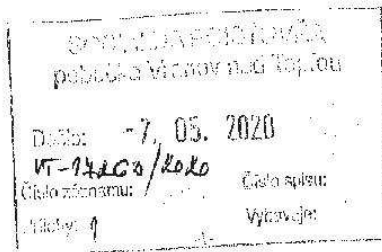 SOCIÁLNA POISŤOVŇA
pobočka Vranov nad Topľou
Došlo: -7. 05. 2020
VT-17260/2020
Číslo záznamu: Číslo spisu:
Prílohy: 1 Vybavuje: